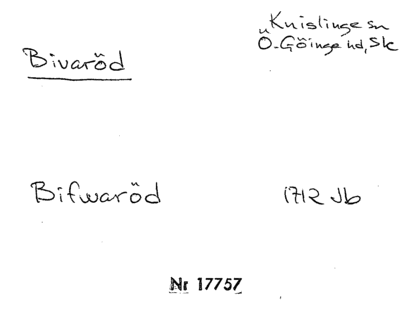 Knislinge sn
Bivaröd
Ö-Göinge hd, Sk
Bifwaröd
1712 Jb
Nr 17757